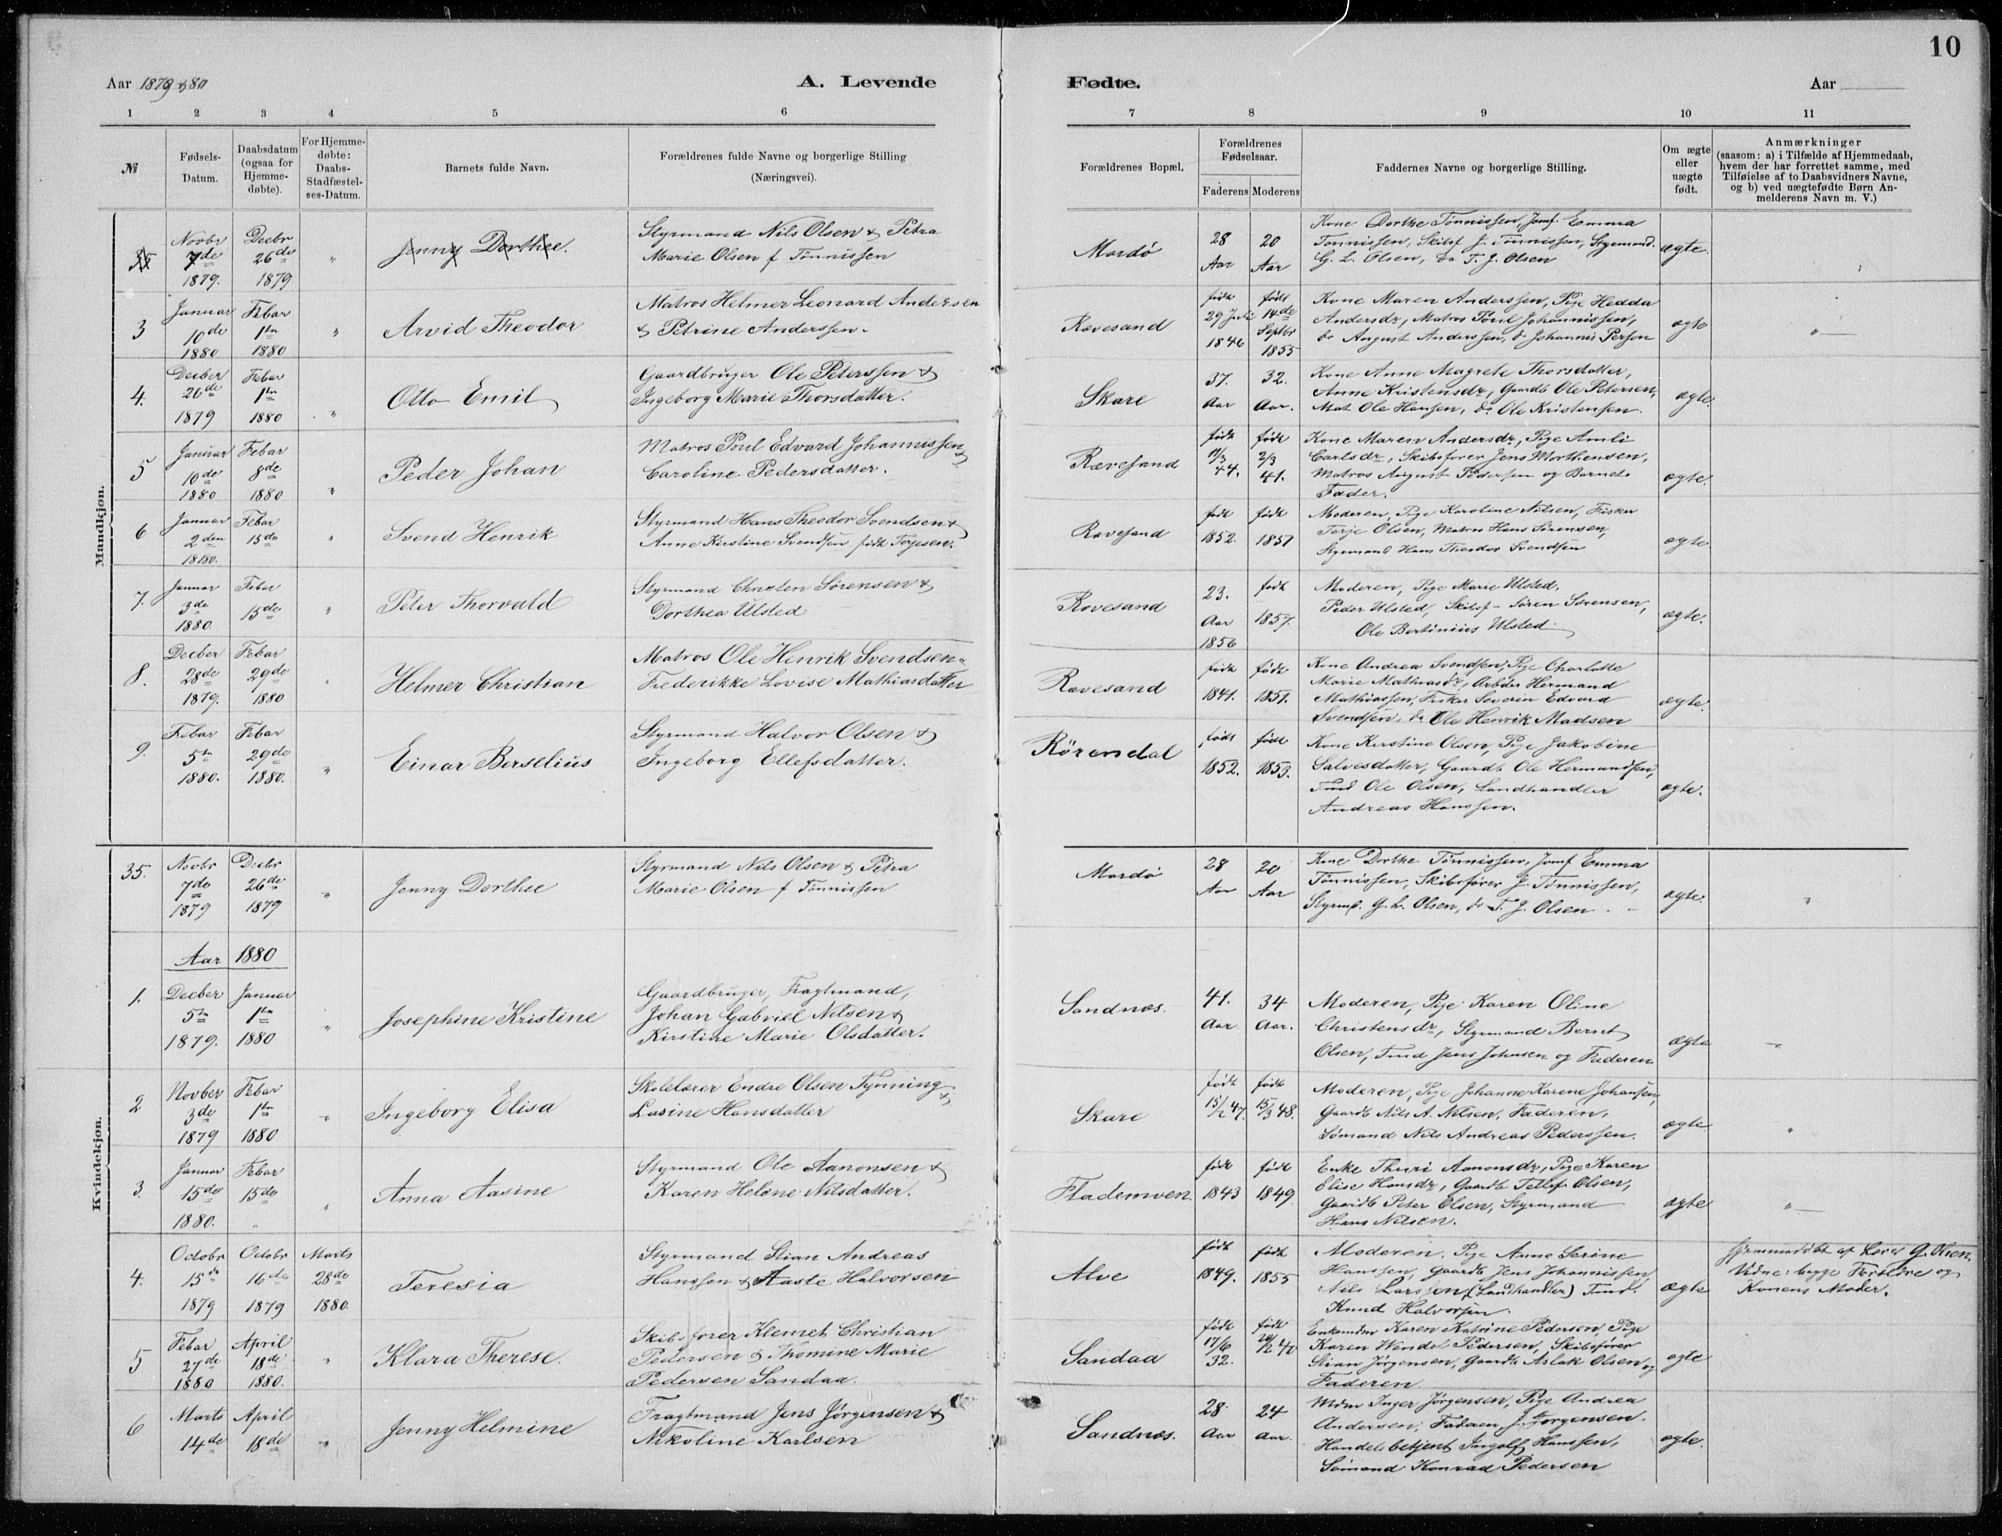 10
Aar 1879 & 80
A. Levende
Fødte.
Aar
1 2 3 4 5 6 7 8 9 10 11
№
Fødsels-Datum.
Daabsdatum (ogsaa for Hjemme-døbte).
For Hjemme-døbte: Daabs-Stadfæstel-ses-Datum.
Barnets fulde Navn.
Forældrenes fulde Navne og borgerlige Stilling (Næringsvei).
Forældrenes Bopæl.
Forældrenes Fødselsaar.
Faderens Moderens
Faddernes Navne og borgerlige Stilling.
Om ægte eller uægte født.
Anmærkninger
(saasom: a) i Tilfælde af Hjemmedaab,
hvem der har forrettet samme, med
Tilføielse af to Daabsvidners Navne,
og b) ved uægtefødte Børn An-
melderens Navn m. V.)
Mandkjøn.
35 Novbr 7de 1879. Decbr 26de 1879 " Jenny Dorthee.
Styrmand Nils Olsen & Petra
Marie Olsen f Tønnissen
Mordø 28 Aar 20 Aar
Kone Dorthe Tønnissen, Jomf. Emma
Tønnissen, Skibsf J. Tønnissen, Styrmand.
G. L. Olsen, do T. J. Olsen
ægte.
3 Januar 10de 1880 Febar 1ste 1880 " Arvid Theodor
Matros Helmer Leonard Andersen
& Petrine Anderssen.
Rævesand født 29 Juli 1846 født 14de Septbr 1855
Kone Maren Anderssen, Pige Hedda
Andersdr, Matros Poul Johannissen,
do August Anderssen, do Johannis Person
ægte "
4. Decber 26de 1879 Febar 1ste 1880 " Otto Emil
Gaardbruger Ole Peterssen &
Ingeborg Marie Thorsdatter.
Skare 37. Aar 32. Aar.
Kone Anne Magrete Thorsdatter,
Anne Kristensdr, Gaardb Ole Petersen,
Mat Ole Hansen, do Ole Kristensen.
ægte.
5 Januar 10de 1880 Febar 8de 1880 " Peder Johan
Matros Poul Edvard Johannissen &
Caroline Pedersdatter.
Rævesand født 44. født 2/3 41.
Kone Maren Andersdr, Pige Amli
Carlsdr, Skibsfører Jens Morthensen,
Matros August Pedersen og Barnets
Fader.
ægte.
6 Januar 2den 1880. Febar 15de " Svend Henrik
Styrmand Hans Theodor Svendsen &
Anne Kirstine Svendsen født Terjesen.
Rævesand født 1852. født 1857
Moderen, Pige Karoline Nilsen, Fisker
Terje Olsen, Matros Hans Sørensen,
Styrmand Hans Theodor Svendsen
ægte.
7. Januar 3de 1880. Febar 15de " Peter Thorvald
Styrmand Christen Sørensen &
Dorthea Ulsted
Rævesand 23. Aar 1856 født 1857.
Moderen, Pige Marie Ulsted,
Peder Ulsted, Skibsf Søren Sørensen,
Ole Bertinius Ulsted.
ægte.
8. Decber 28de 1879. Febar 29de 1880 Helmer Christian
Matros Ole Henrik Svendsen
Frederikke Lovise Mathiasdatter
Rævesand født 1841. født 1851.
Kone Andrea Svendsen, Pige Charlotte
Marie Mathiasdr, Arbder Hermand
Mathiassen, Fisker Severin Edvard
Svendsen, do Ole Henrik Madsen
ægte.
9. Febar 5te 1880. Febar 29de 1880. " Einar Berselius
Styrmand Halvor Olsen &
Ingeborg Ellefsdatter.
Rørendal født 1852. født 1853.
Kone Kirstine Olsen, Pige Jakobine
Salvesdatter, Gaardb Ole Hermandsen,
Tmd Ole Olsen, Landhandler
Andreas Hanssen.
ægte.
Kvindekjøn.
35. Novbr 7de 1879 Decbr 26de 1879 " Jenny Dorthee
Styrmand Nils Olsen & Petra
Marie Olsen f Tønnissen
Mordø 28 Aar 20 Aar
Kone Dorthe Tønnissen, Jomf Emma
Tønnissen, Skibsfører J. Tønnissen,
Styrmd. G. L. Olsen, do T. J. Olsen.
ægte. "
Aar 1880
1. Decber 5te 1879. Januar 1ste 1880 " Josephine Kristine
Gaardbruger, Fragtmand,
Johan Gabriel Nilsen &
Kirstine Marie Olsdatter.
Sandnæs. 41. Aar 34 Aar.
Moderen, Pige Karen Oline
Christensdr, Styrmand Bernt
Olsen, Tmd Jens Johnsen og Faderen
ægte "
2 Novber 3de 1879 Febar 1ste 1880 " Ingeborg Elisa
Skolelærer Endre Olsen Tynning &
Lasine Hansdatter
Skare født 15/2 47. født 15/3 48.
Moderen, Pige Johanne Karene Johansen,
Gaardb Nils A. Nilsen, Faderen,
Sømand Nils Andreas Pederssen.
ægte "
3. Januar 15de 1880. Febar 15de " Anna Aasine
Styrmand Ole Aanonsen &
Karen Helene Nilsdatter.
Flademoen født 1843 født 1849.
Enke Thuri Aanonsdr, Pige Karen
Elise Hansdr, Gaardb Tellef Olsen,
Gaardb Peter Olsen, Styrmand
Hans Nilsen.
ægte "
4. Octobr 15de 1879 Octobr 16de 1879 Marts 28de 1880. Teresia
Styrmand Stian Andreas
Hanssen & Aaste Halvorsen
Alve født 1849. født 1855
Moderen, Pige Anne Serine
Hanssen, Gaardb Jens Johannissen
Nils Larssen (Landhandler) Tmd.
Knud Halvorsen.
ægte
Hjemmedøbt af Lærer G. Olsen
Vidne: begge Forældre og
Konens Moder.
5 Febar 27de 1880 April 18de 1880. " Klara Therese.
Skibsfører Klemet Christian
Pedersen & Thomine Marie
Pedersen Sandaa.
Sandaa født 17/6 32. født 20/2 40
Enkemdm Karen Katrine Pedersen Pige
Karen Wendel Pedersen, Skibsfører
Stian Jørgensen, Gaardb Aslak Olsen, og
Faderen.
ægte
6 Marts 14de April 18de " Jenny Helmine
Fragtmand Jens Jørgensen &
Nikoline Karlsen
Sandnæs. 28 Aar 24 Aar.
Mdm Inger Jørgensen, Pige Andrea
Andersen, Faderen J. Jørgensen.
Handelsbetjent Ingolf Hanssen,
Sømand Konrad Pedersen
ægte.